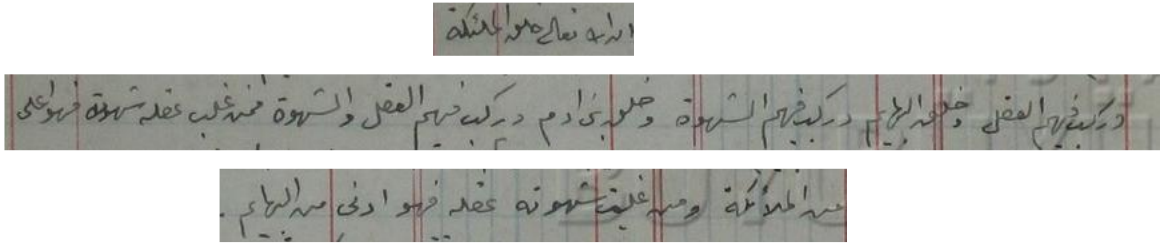 ان الله تعالى خلق الملئكة
وركب فيهم العقل وخلق البهايم وركب فيهم الشهوة وخلق بنى ادم وركب فيهم العقل والشهوة فمن غلب عقله شهوته فهو اعلى
من الملائكة ومن غلبت شهوته عقله فهو ادنى من البهايم .